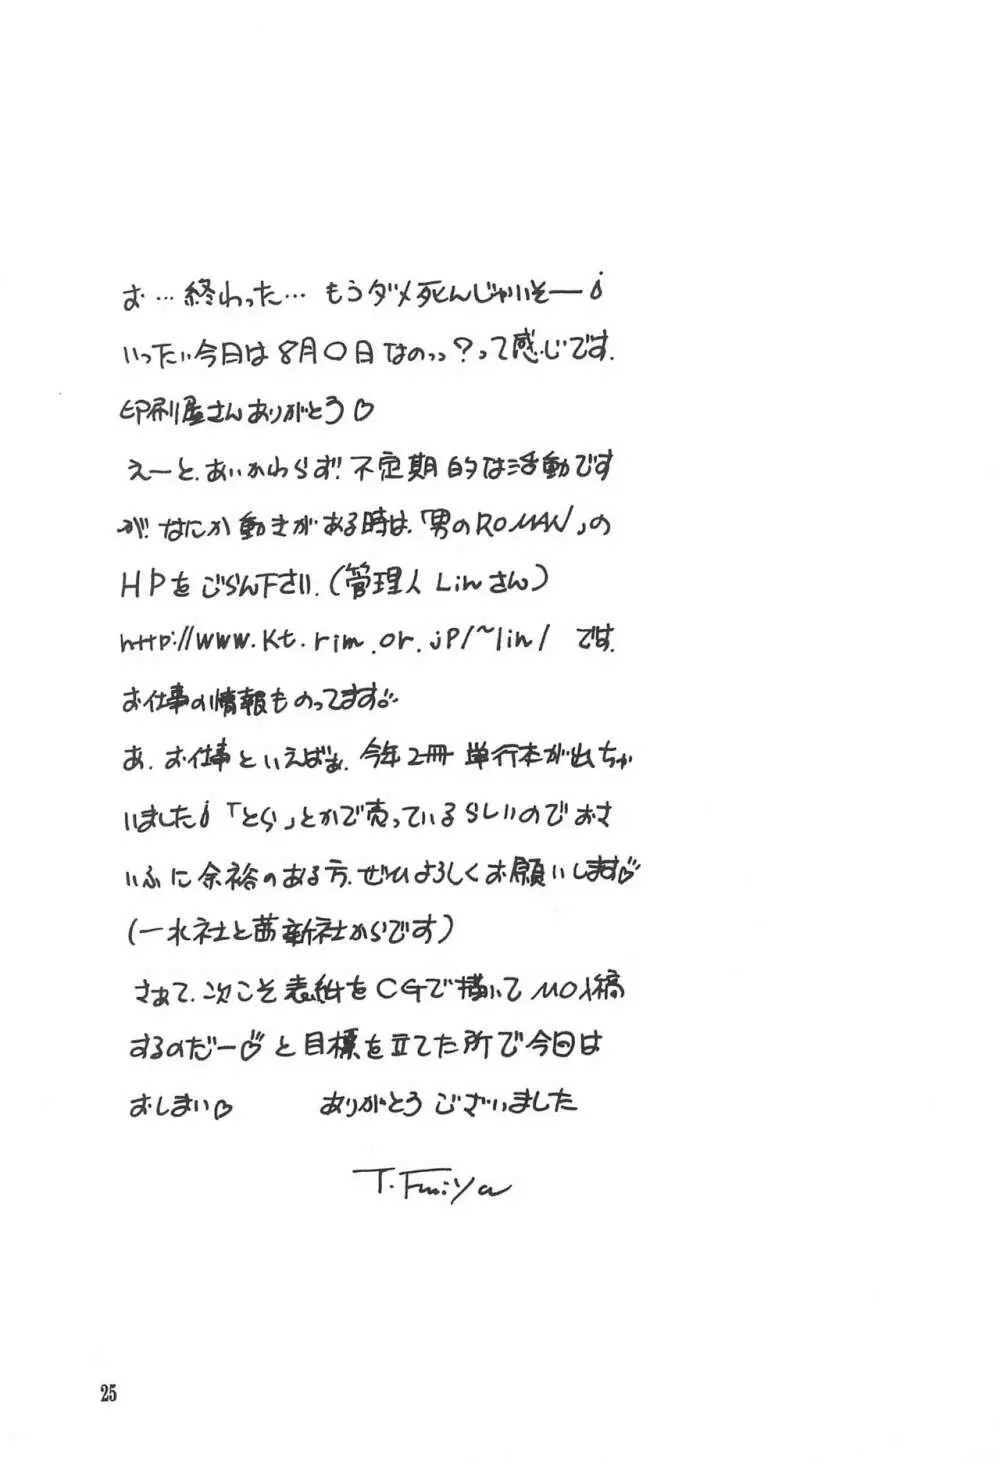 お…終わった… もうダメ死んじゃいそー!
いったい今日は8月〇日なのっ?って感じです.
印刷屋さんありがとう♡
えーと、あいかわらず不定期的な活動です
が、なにか動きがある時は、「男のROMAN」の
HPをごらん下さい.(管理人Linさん)
http://www.kt.rim.or.jp/~lin/ です.
お仕事の情報ものってます♡
あ、お仕事といえばぁ、今年2冊単行本が出ちゃ
いました!「とら」とかで売っているらしいのでおさ
いふに余裕のある方、ぜひよろしくお願いします♡
(一水社と茜新社からです)
さぁて、次こそ表紙をCGで描いてMO入稿
するのだー♡と目標を立てた所で今回は
おしまい♡ ありがとうございました
T.Fujiya
25